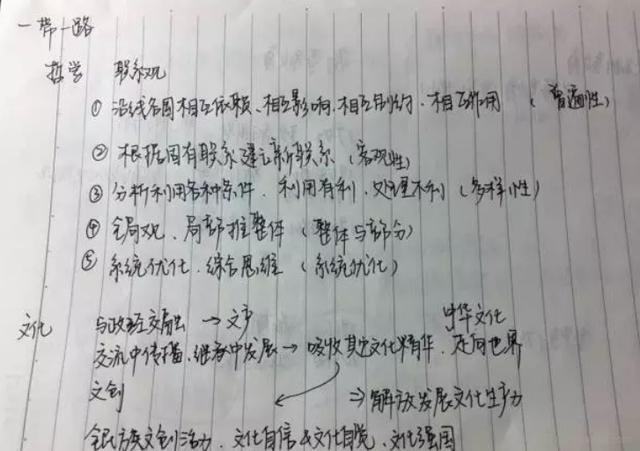 一带一路
哲学 联系观
① 沿线各国相互依赖、相互影响、相互制约、相互作用 (普遍性)
② 根据固有联系建立新联系 (客观性)
③ 分析利用各种条件、利用有利、处理不利 (多样性)
④ 全局观、局部推整体 (整体与部分)
⑤ 系统优化、综合思维 (系统优化)
文化 与政经交融 → 文产 中华文化
交流中传播、继承中发展 → 吸收其它文化精华、走向世界
文创 ⇒ 解放发展文化生产力
全民族文创活力、文化自信&文化自觉、文化强国